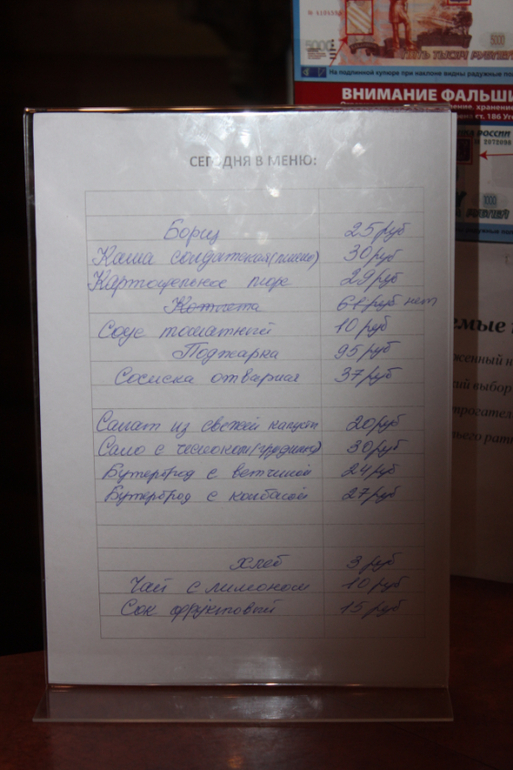 5000
5000
ПЯТЬ ТЫСЯЧ РУБЛЕЙ
На подлинной купюре при наклоне видны радужные
ВНИМАНИЕ ФАЛЬШИ
хранение
ст. 186
РОССИИ
СЕГОДНЯ В МЕНЮ:
Борщ 25 руб
Каша солдатская (пшено) 30 руб
Картофельное пюре 29 руб
Котлета 61 руб нет
Соус томатный 10 руб
Поджарка 95 руб
Сосиска отварная 37 руб
Салат из свежей капусты 20 руб
Сало с чесноком (грудинка) 30 руб
Бутерброд с ветчиной 24 руб
Бутерброд с колбасой 27 руб
хлеб 3 руб
Чай с лимоном 10 руб
Сок фруктовый 15 руб
емые
женный
выбор